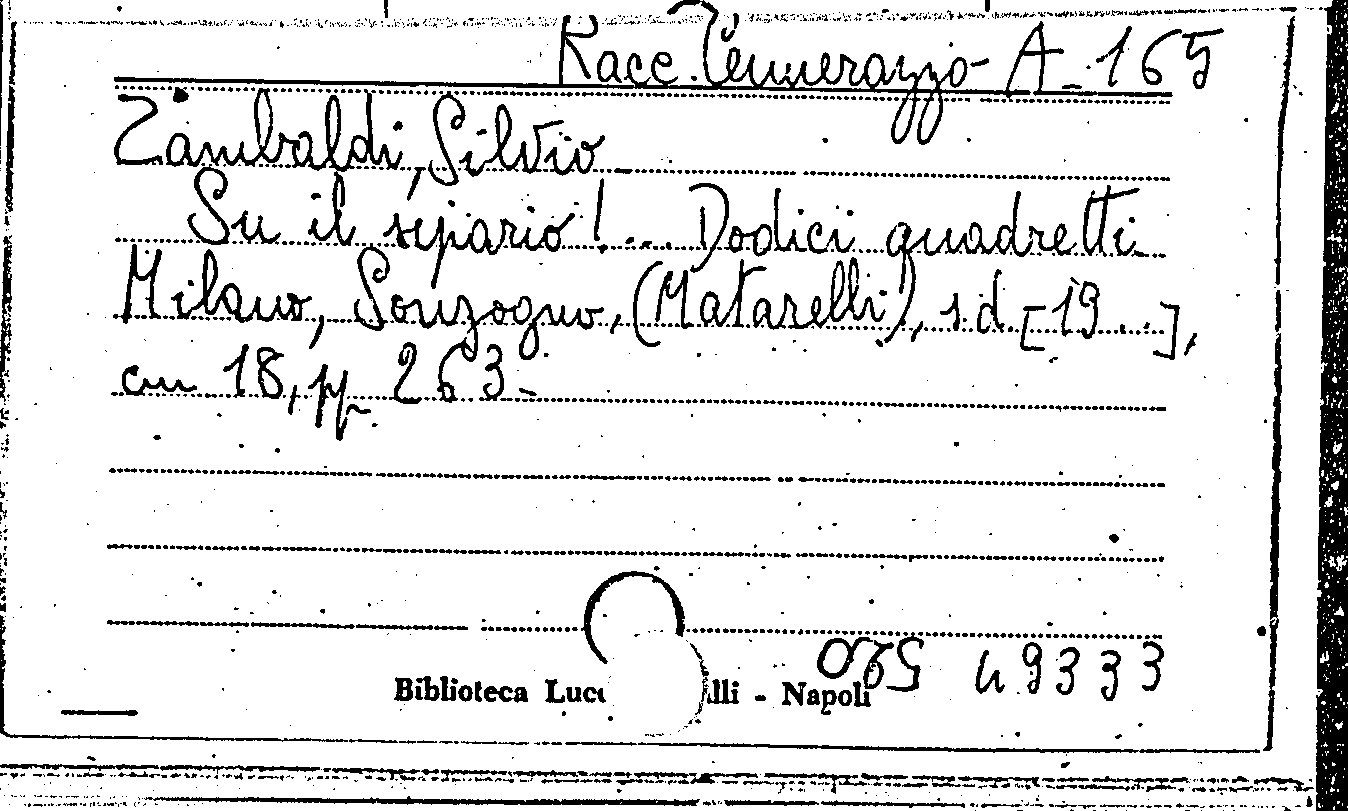 Racc. Tennerazzo - A - 165
Zambaldi, Silvio
Su il sipario!... Dodici quadretti
Milano, Sonzogno, (Matarelli), s.d. [19...],
cm 18, pp. 263 -
Biblioteca Lucc lli - Napoli
49333